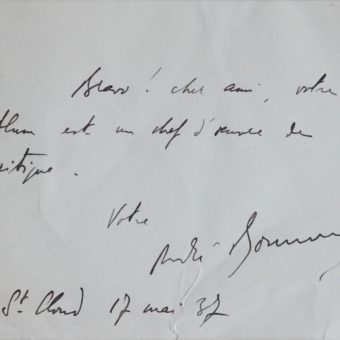 Bravo ! cher ami, votre
est un chef d'œuvre de
Votre
André
St Cloud 17 mai 37